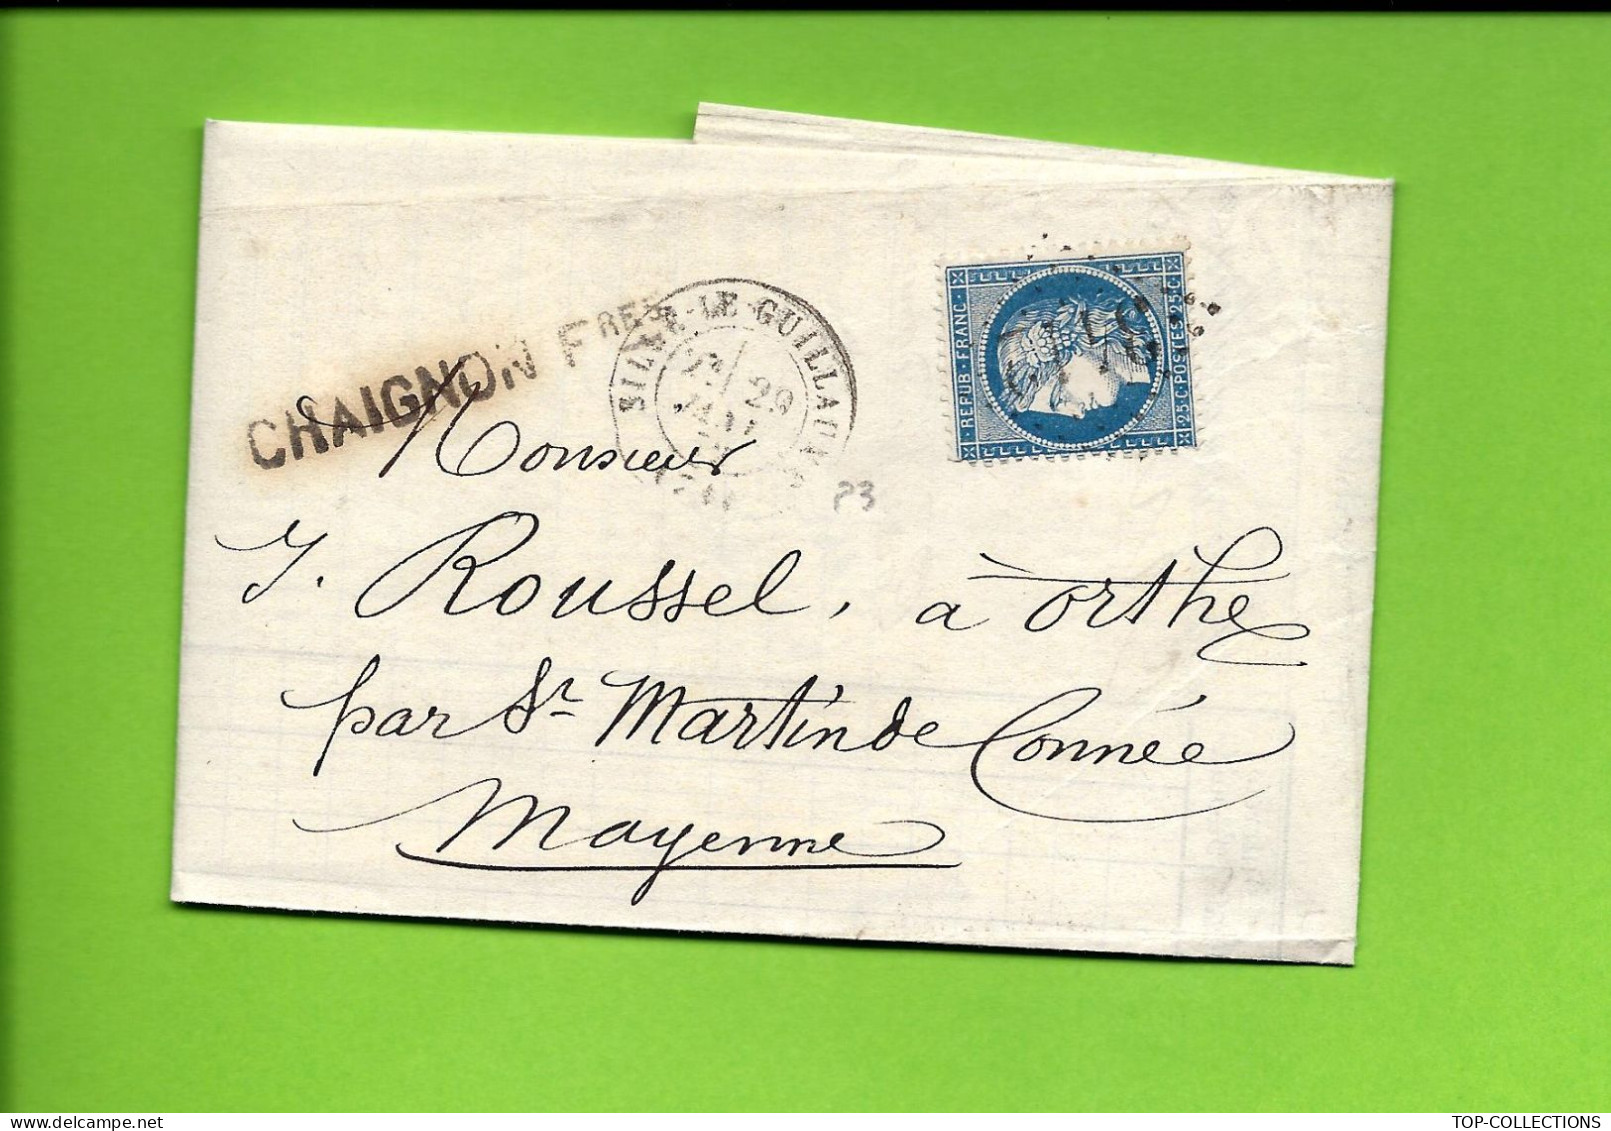 CHAIGNON FRES
SILLÉ-LE-GUILLAUME
29
REPUB·FRANC·
25C·POSTES·25C
Monsieur
P3
J. Roussel, à Orthe
par St Martin de Connée
Mayenne
TOP-COLLECTIONS